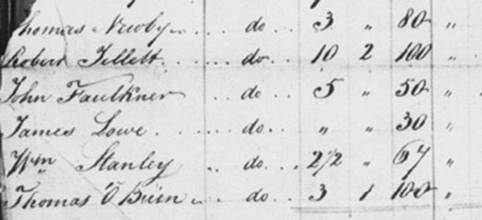 Thomas Newby .. do .. 3 " 80 "
Robert Tellett ..... do .. 10 2 100 "
John Faulkner .. do .. 5 " 50 "
James Lowe ...... do .. " " 30 "
Wm Stanley .. do ... 2 1/2 " 67 "
Thomas O'Brien .. do .. 3 1 100 "